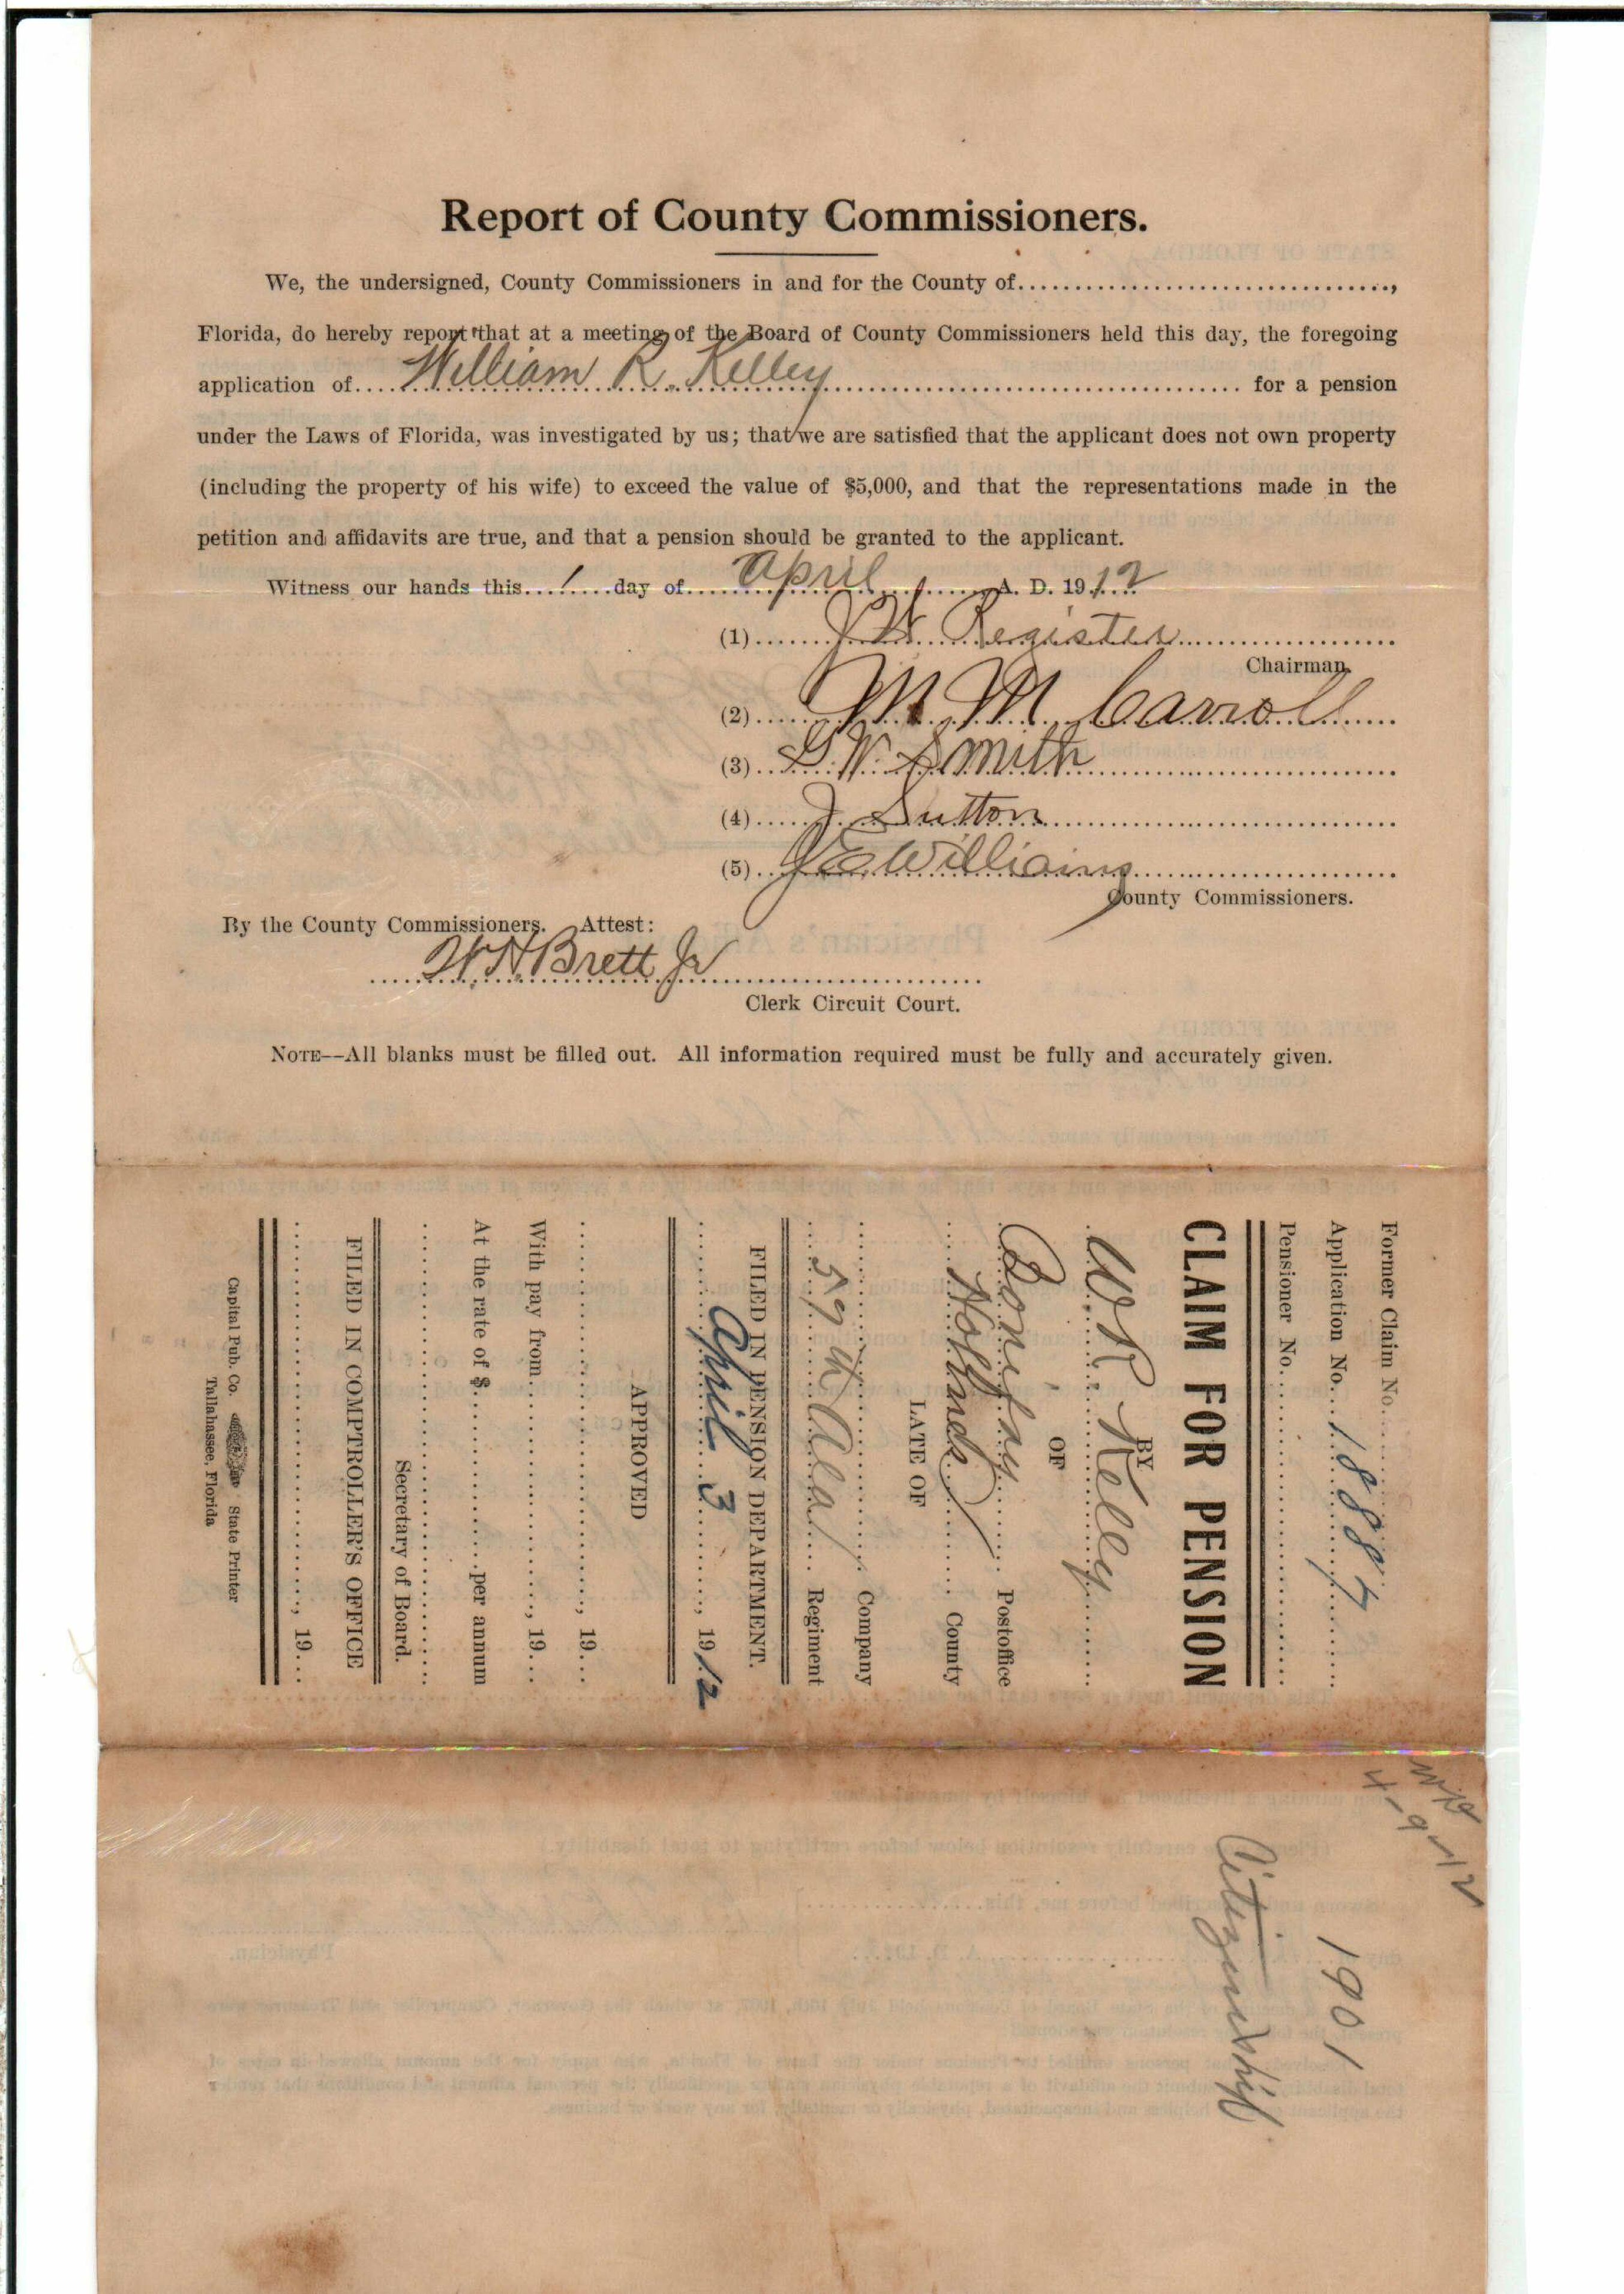 Report of County Commissioners.
We, the undersigned, County Commissioners in and for the County of..............................,
Florida, do hereby report that at a meeting of the Board of County Commissioners held this day, the foregoing
application of.... William R. Kelley .............................. for a pension
under the Laws of Florida, was investigated by us; that we are satisfied that the applicant does not own property
(including the property of his wife) to exceed the value of $5,000, and that the representations made in the
petition and affidavits are true, and that a pension should be granted to the applicant.
Witness our hands this...1...day of... April ... A. D. 1912
(1) J W Register
Chairman
(2) M. M. Carroll
(3) G. W. Smith
(4) J. Sutton
(5) J E Williams
County Commissioners.
By the County Commissioners. Attest:
W H Brett Jr
Clerk Circuit Court.
NOTE--All blanks must be filled out. All information required must be fully and accurately given.
Former Claim No..........
Application No... 18887
Pensioner No..........
CLAIM FOR PENSION
BY
W. R. Kelley
OF
Bonifay Postoffice
Holmes County
LATE OF
.......... Company
57th Ala Regiment
FILED IN PENSION DEPARTMENT.
April 3, 1912
APPROVED
.........., 19...
With pay from.........., 19...
At the rate of $..........per annum
..........
Secretary of Board.
FILED IN COMPTROLLER'S OFFICE
.........., 19...
Capital Pub. Co. State Printer
Tallahassee, Florida
4-9-12
1901
Citizenship